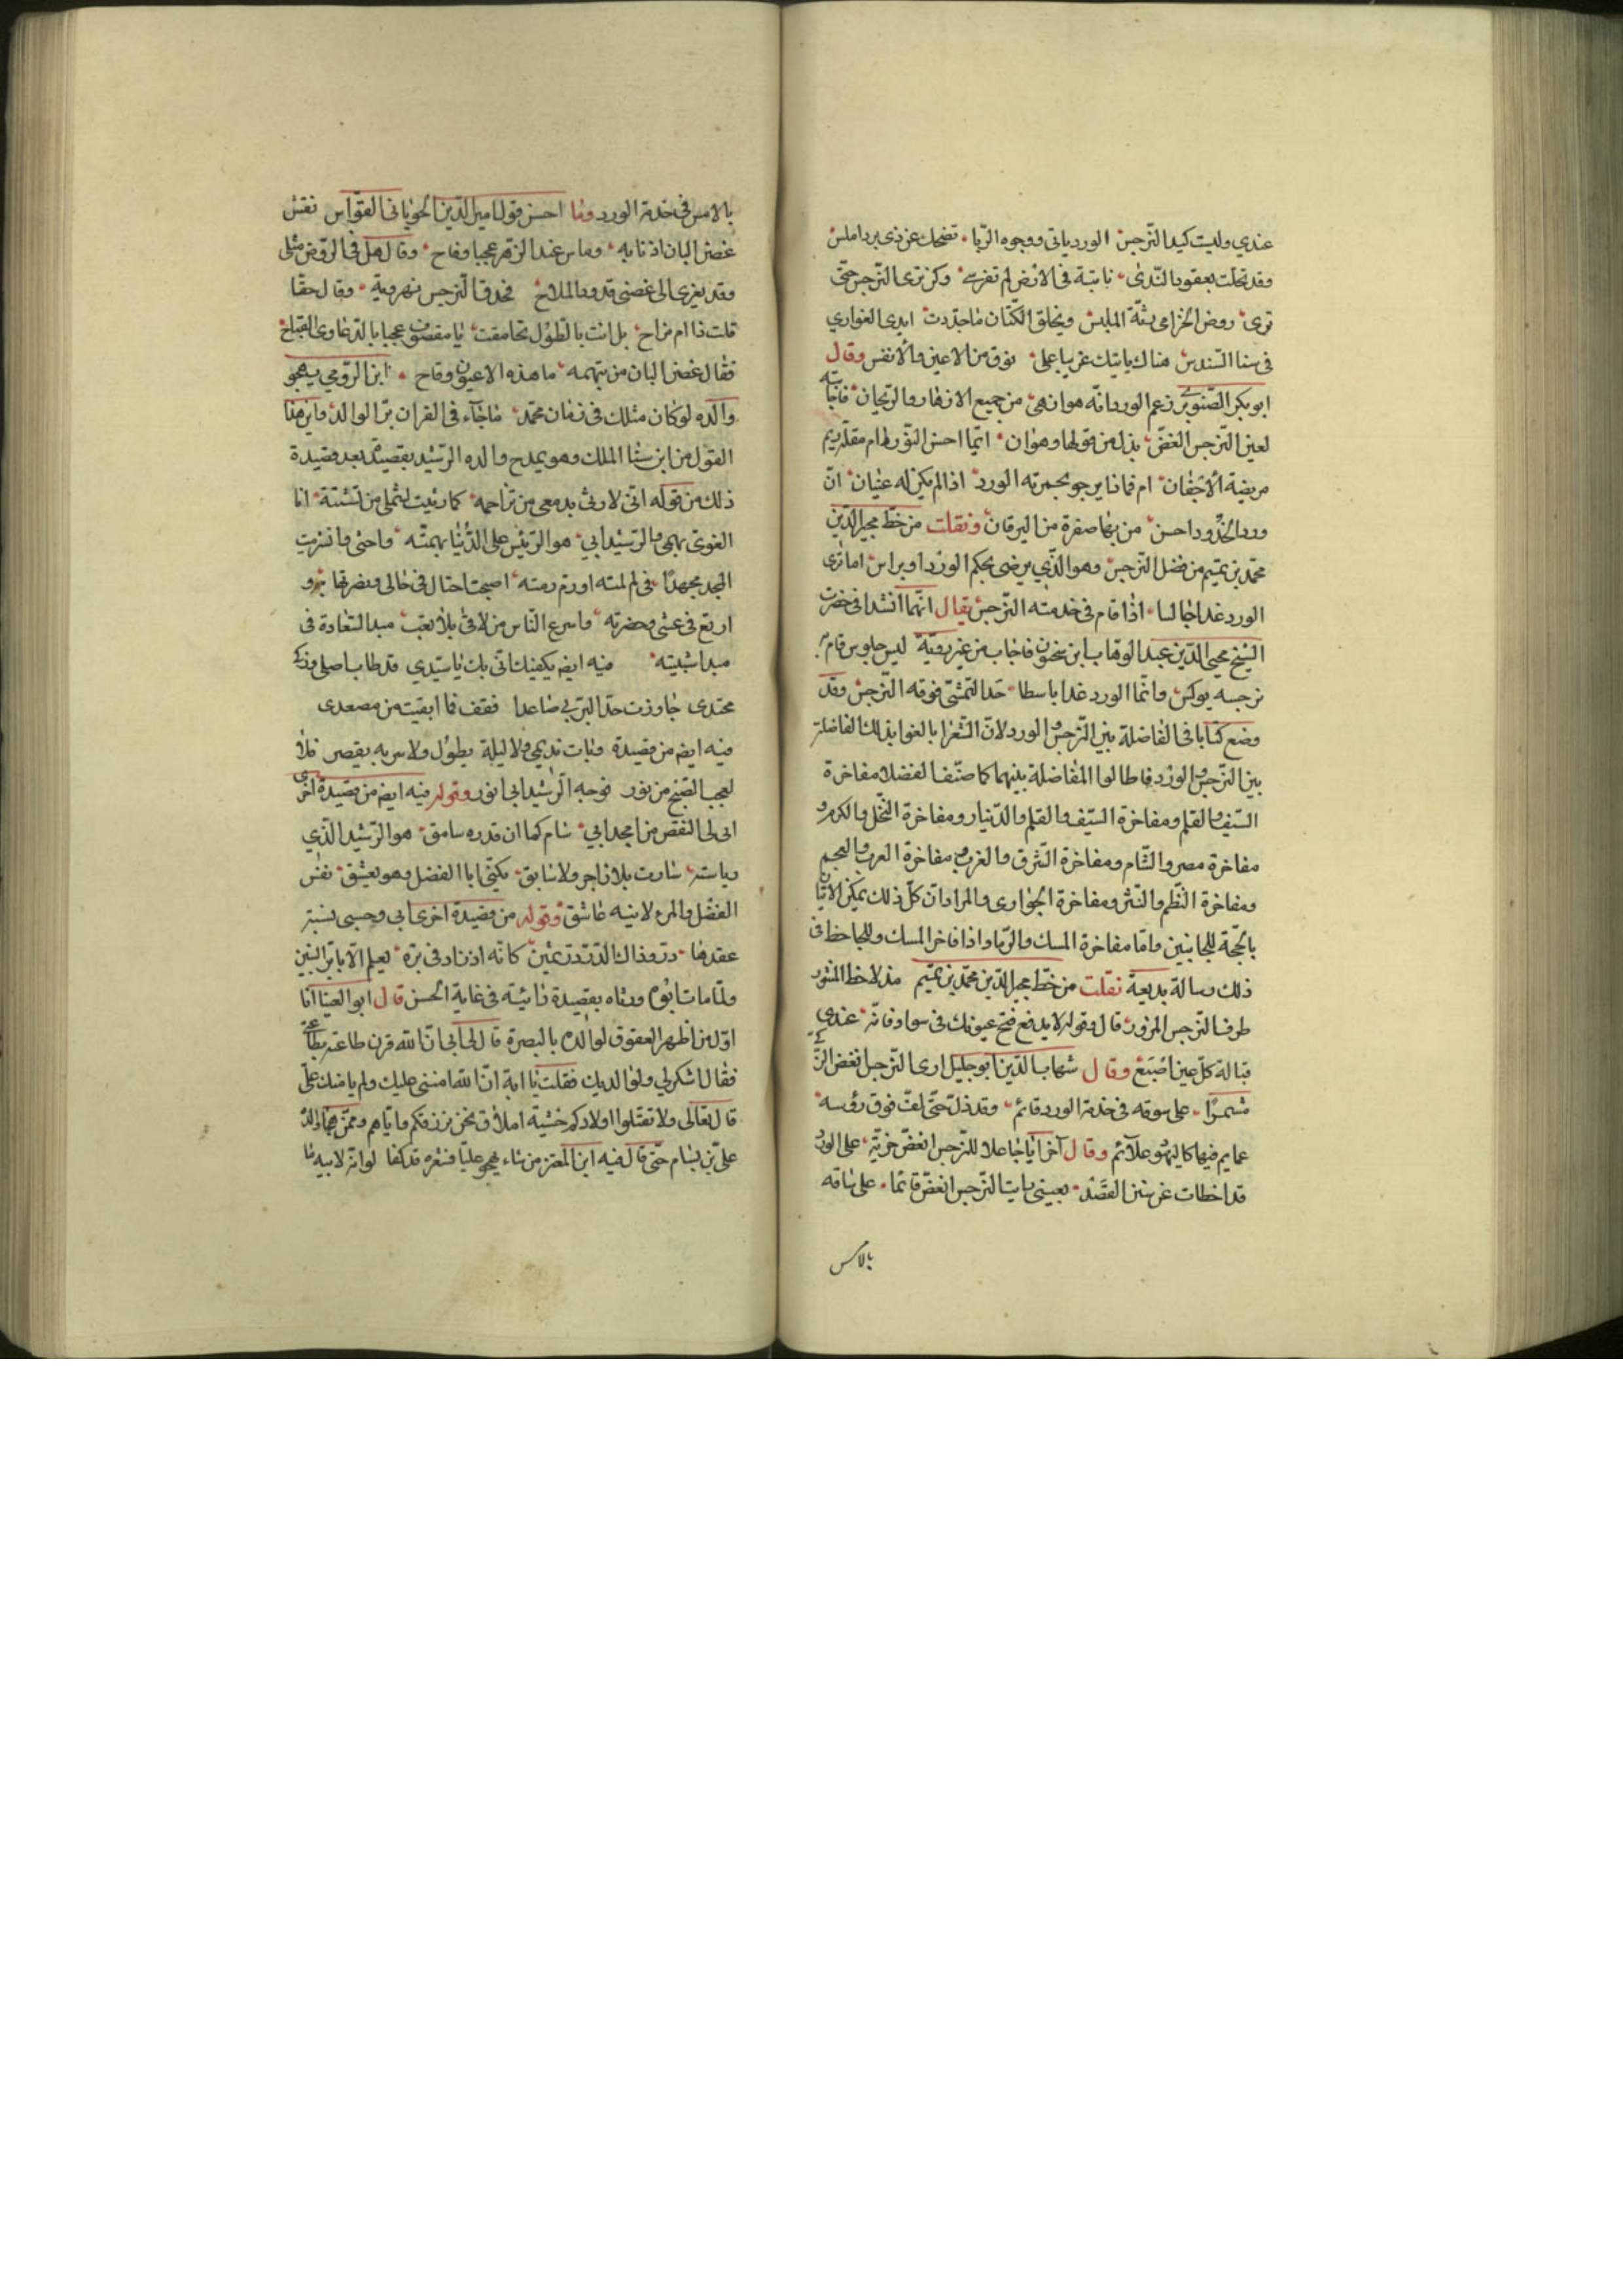 عندي وليت كيد النرجس الورد ياتي ووجوه الربا تضحك عن ذي برد املس
وقد تحلت بعقود الندى نابتة في الارض لم تغرس وكن ترى النرجس حتى
ترى روض الخزامى رثة الملبس ويخلق الكتان ما جددت ايدي الغواري
في سنا السندس هناك ياتيك غريبا على نوق من الاعين والانفس وقال
ابو بكر الصنوبري زعم الورد انه هو ازهى من جميع الازهار والريحان فاجابته
لعين النرجس الغض بذل من قولها وهوان ايما احسن التورد ام مقلة ريم
مريضة الاجفان ام فماذا يرجو بحمرته الورد اذا لم يكن له عينان ان
ورد الخدود احسن من بها صفرة من اليرقان ونقلت من خط مجير الدين
محمد بن تميم من فضل النرجس وهو الذي يرضى بحكم الورد او يراس اما ترى
الورد غدا جالسا اذا قام في خدمته النرجس يقال انهما انشدا في حضرت
الشيخ محيي الدين عبد الوهاب ابن سحنون فاجاب من غير روية ليس جلوس قام
نرجسه يوكس وانما الورد غدا باسطا خدا لتمشي فوقه النرجس وقد
وضع كتابا في الفاضلة بين النرجس والورد لان الشعرا بالغوا بذلك المفاضلة
بين النرجس والورد فاطالوا المفاضلة بينهما كما صنف الفضلا مفاخرة
السيف والقلم ومفاخرة السيف والقلم والدينار ومفاخرة النخل والكرم و
مفاخرة مصر والشام ومفاخرة الشرق والغرب ومفاخرة العرب والعجم
ومفاخرة النظم والنثر ومفاخرة الجوارى والمراد ان كل ذلك يمكن الاتيان
بالحجة للجانبين واما مفاخرة المسك والرماد واذا فاخر المسك وللجاحظ في
ذلك رسالة بديعة نقلت من خط مجير الدين محمد بن تميم مذ لاحظ المنثور
طرف النرجس المزور قال وقوله لا يدفع فتح عيونك في سواد فانه عندي
قبالة كل عين اصبع وقال شهاب الدين ابو جليل ارى النرجس الغض الزكي
مشمرا على سوقه في خدمة الورد قائم وقد ذل حتى لف فوق رؤسه
عمايم فيها كاليهود علائم وقال اخر ايا جاعلا للنرجس الغض مزية على الورد
قد اخطات عن سنن القصد بعيني رايت النرجس الغض قائما على ساقه
بالامس
بالامس في خدمة الورد وما احسن قول امين الدين الجوباني القواس نقش
غصن البان اذنابه وماس عند الزهر عجبا وفاح وقال هل في الروض مثلى
وقد يغرى الى غصني قدود الملاح فحدق النرجس نهروية وقال حقا
قلت ذا ام مزاح بل انت بالطول تحامقت يا مقصوف عجبا بالدعاوى القباح
فقال غصن البان من تيهه ما هذه الا عيون وقاح ابن الرومي يهجو
والده لو كان مثلك في زمان محمد ما جاء في القران بر الوالد واين هذا
القول من ابن سنا الملك وهو يمدح والده الرشيد بقصيدة بعد قصيدة
ذلك من قوله اني لارثى بدمعي من تراحمه كما رثيت لشملي من تشتته انا
الغوى بهمي والرشيد ابي هو الرئيس على الدنيا بهمته واحنى وافترت
المجد مجهدا في لم لمته او رم رمته اصبحت اختال في خالي ونضرتها
ارتع في عشى وحضرته واسرع الناس من لاقى بلا تعب مبدا السعادة في
مبدا شبيبته وفيه ايضا يكفيك اني بك يا سيدي قد طاب اصلي وزكى
محتدى جاوزت حد البر بي صاعدا فقف فما ابقيت من مصعدى
وفيه ايضا من قصيدة وبات نديمي ولا ليلة يطول ولا سر به يقصر فلا
لعجب الصبح من نور فوجه الرشيد ابي انور وقوله فيه ايضا من قصيدة اخرى
ابى لي النقص من امجد ابي سام كما ان قدره سامق هو الرشيد الذي
رياسته سارت بلا زاجر ولا سابق يكنى ابا الفضل وهو يعشق نفس
الفضل والمرء لابنه عاشق وقوله من قصيدة اخرى ابي وحسبي نسبة
عقدها در وذاك الدر در ثمين كانه اذ زاد في بره يعلم الابا بر البنين
ولما مات ابوه ورثاه بقصيدة تائية في غاية الحسن قال ابو العينا انا
اول من اظهر العقوق لوالده بالبصرة قال لي ابي ان الله قرن طاعته بطاعتي
فقال اشكر لي ولوالديك فقلت يا ابة ان الله امنني عليك ولم يامنك علي
قال تعالى ولا تقتلوا اولادكم خشية املاق نحن نرزقكم واياهم وممن هجا والده
علي بن بسام حتى قال فيه ابن المعتز من شاء يهجو عليا فشعره قد كفا لو انه لابيه ما